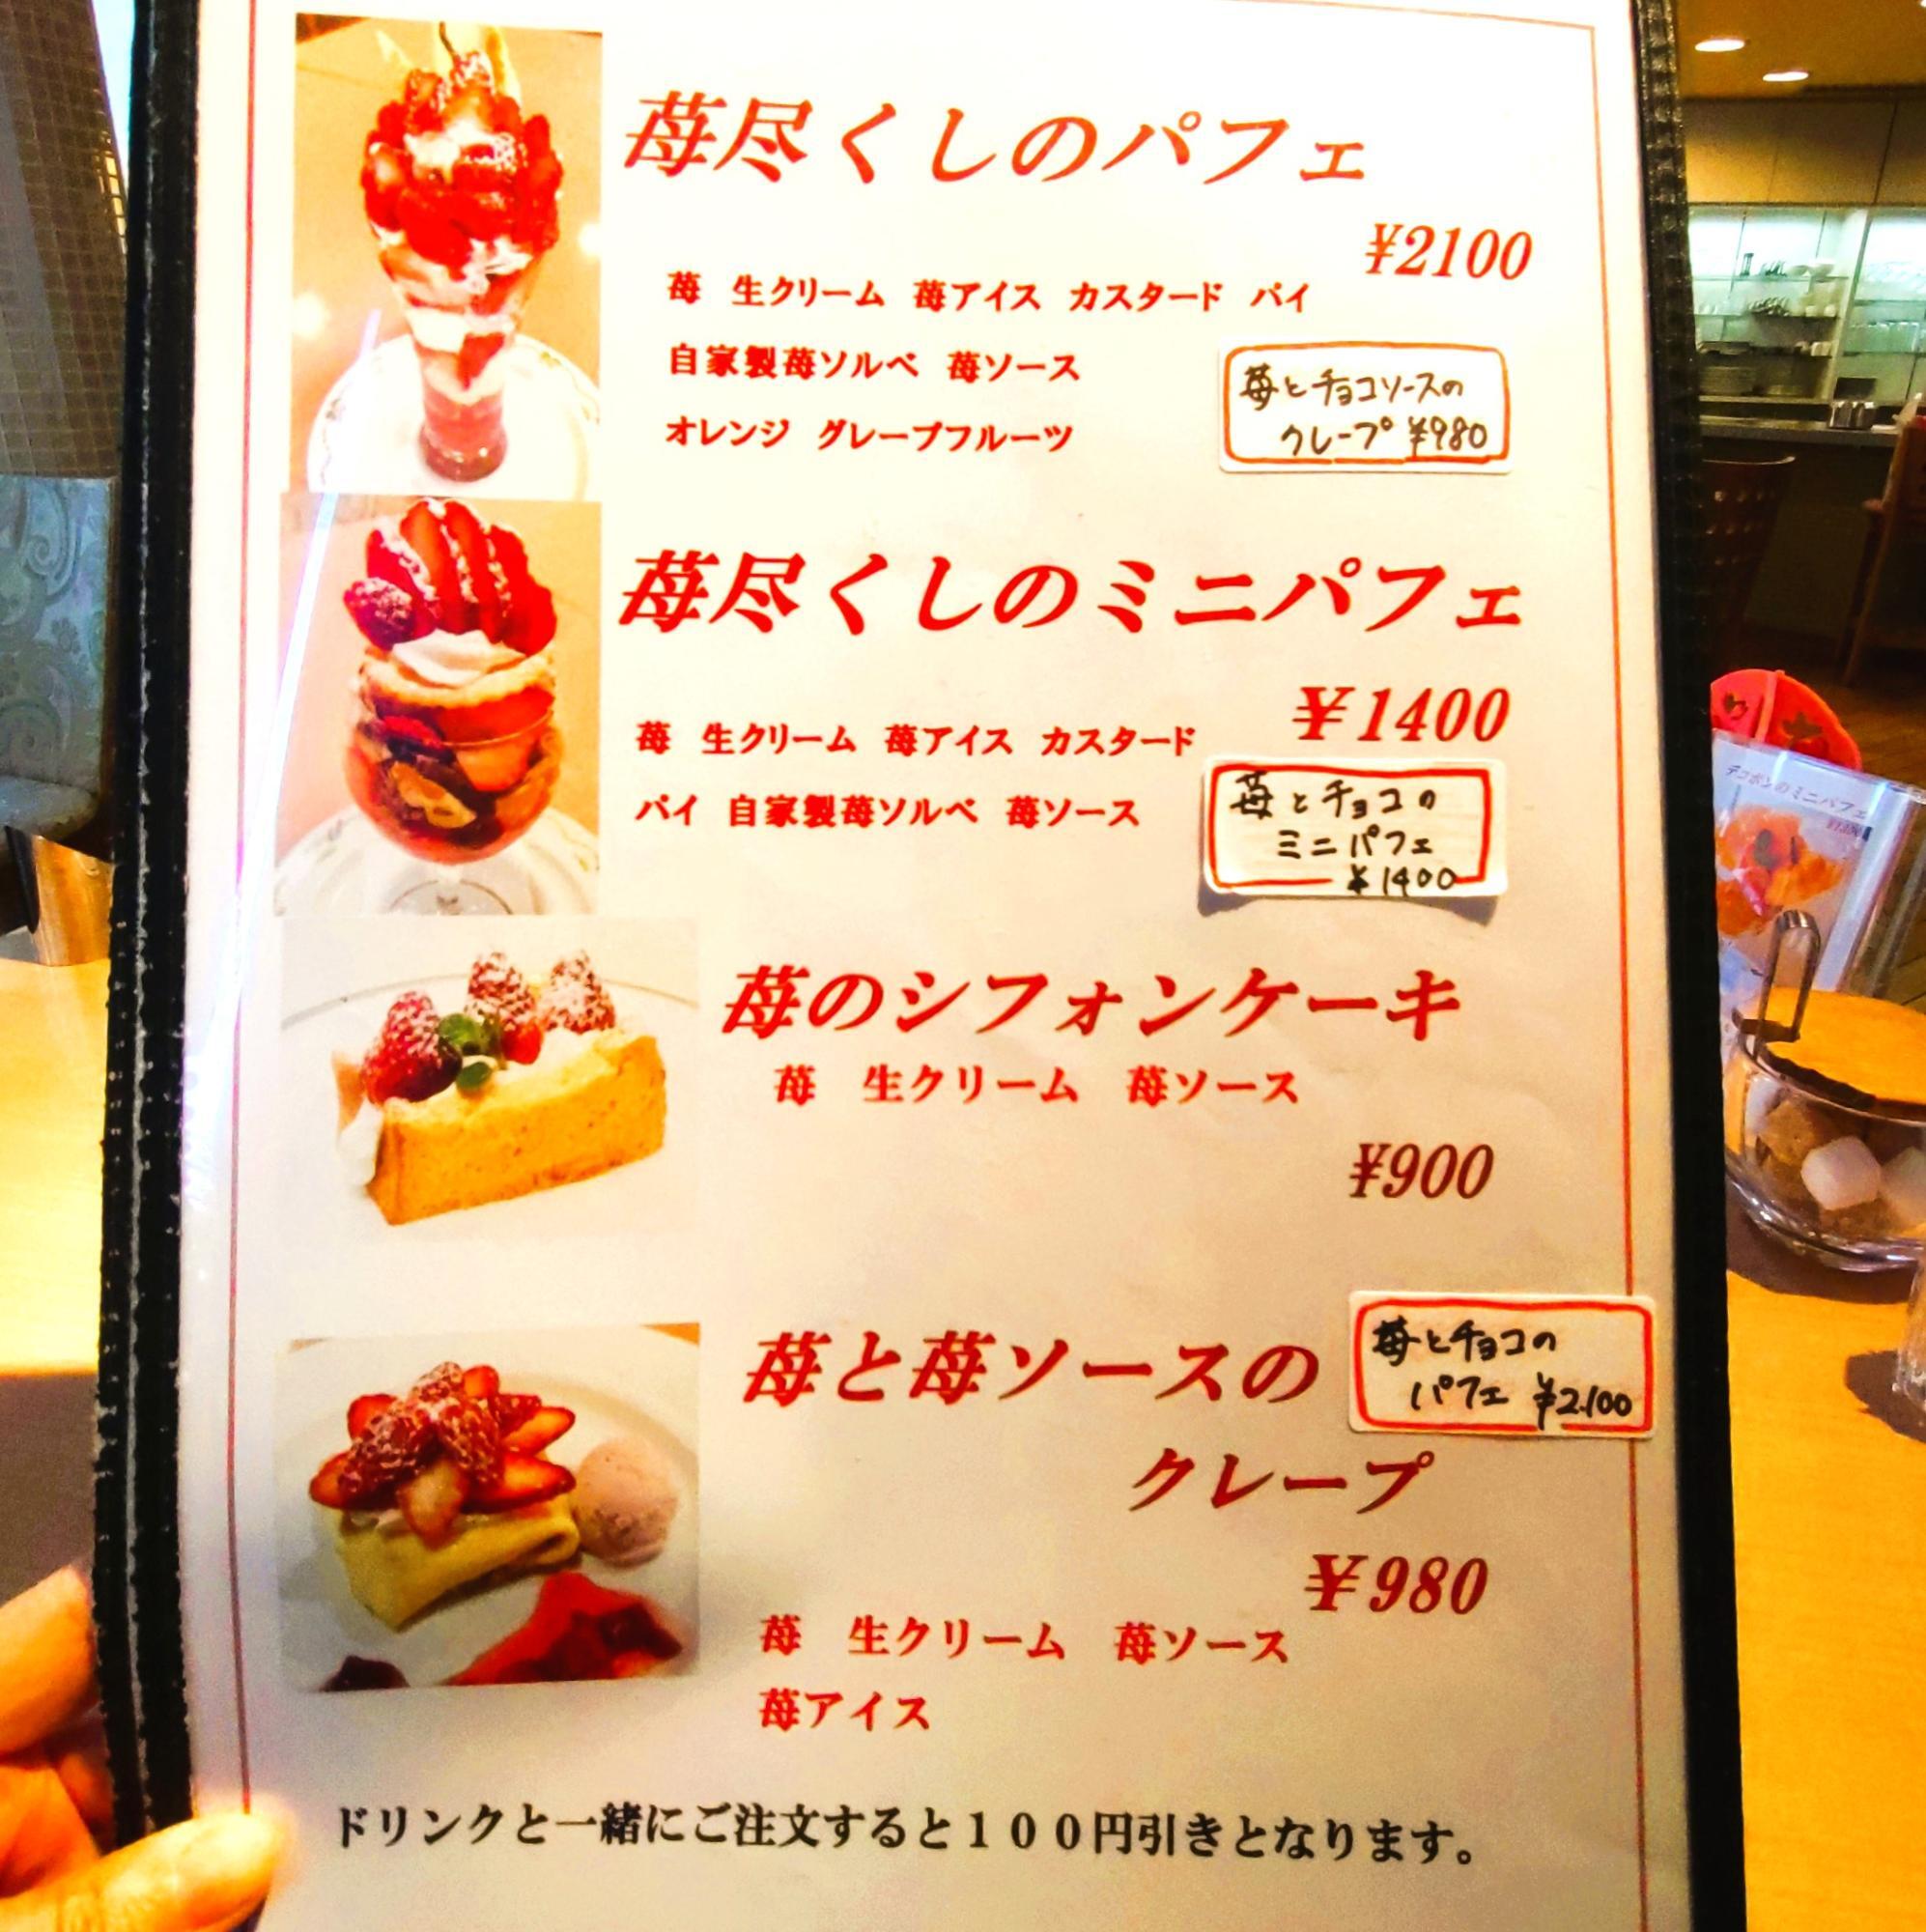 苺尽くしのパフェ
¥2100
苺 生クリーム 苺アイス カスタード パイ
自家製苺ソルベ 苺ソース
オレンジ グレープフルーツ
苺とチョコソースの
クレープ ¥980
苺尽くしのミニパフェ
¥1400
苺 生クリーム 苺アイス カスタード
パイ 自家製苺ソルベ 苺ソース
苺とチョコの
ミニパフェ
¥1400
苺のシフォンケーキ
苺 生クリーム 苺ソース
¥900
苺と苺ソースの
クレープ
苺とチョコの
パフェ ¥2.100
¥980
苺 生クリーム 苺ソース
苺アイス
ドリンクと一緒にご注文すると１００円引きとなります。
デコポンのミニパフェ